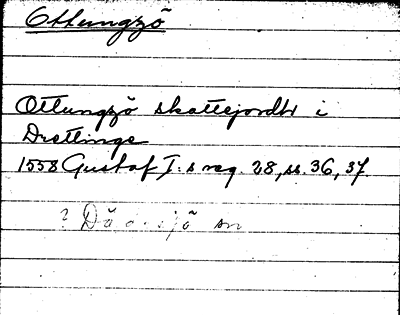 Ottungzö
Ottungzö skattejordh i
Dretlinge
1558 Gustaf I:s reg. 28, ss. 36, 37.
? sn